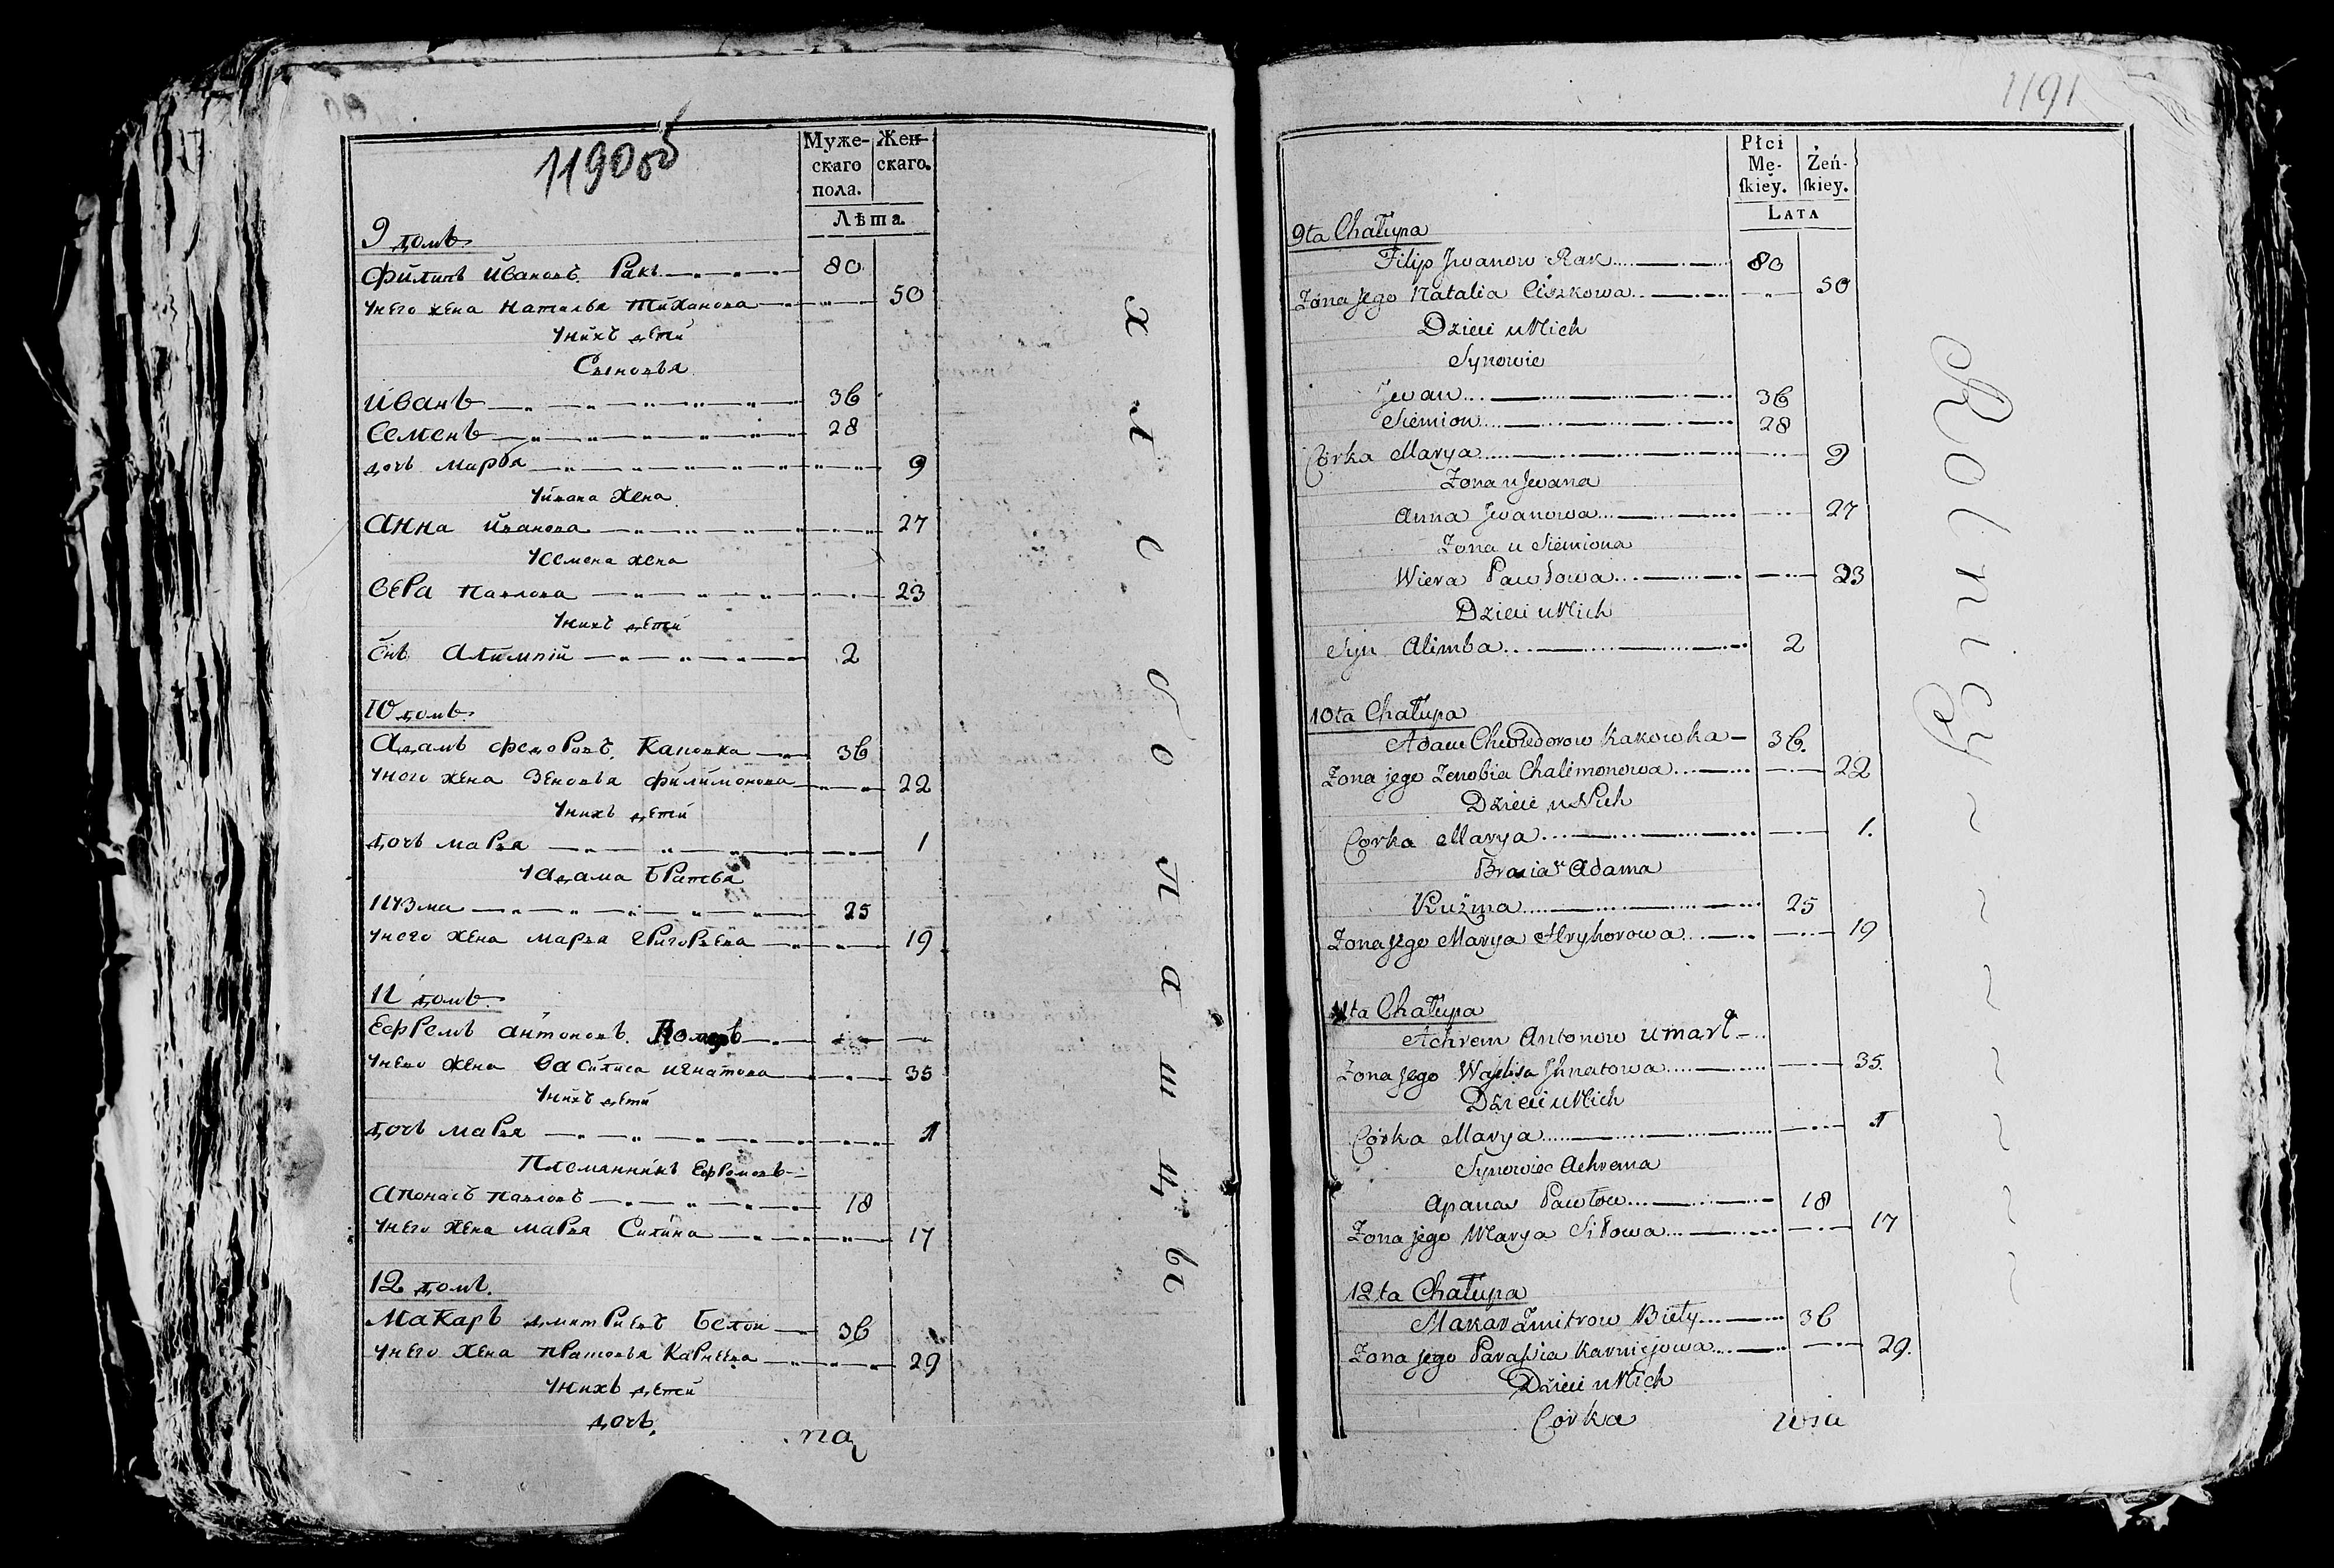 1190об
Муже-
скаго
пола.
Жен-
скаго.
Лѣта.
9 домъ
Филипъ Ивановъ Ракъ 80
У него жена Наталья Тиханова 50
У нихъ дети
Сыновья
Иванъ 36
Семенъ 28
дочь Марья 9
У Ивана жена
Анна Иванова 27
У Семена жена
Вера Павлова 23
У нихъ дети
Снъ Алимпiй 2
10 домъ
Адамъ Федоровъ Каковка 36
У него жена Зеновья Филимонова 22
У нихъ дети
дочь Марья 1
У Адама братья
Кузма 25
У него жена Марья Григорьева 19
11 домъ
Ефремъ Антоновъ
У него жена Василиса Игнатова 35
У нихъ дети
дочь Марья 1
Племянникъ Ефремовъ
Апонасъ Павловъ 18
У него жена Марья Силина 17
12 домъ
Макаръ Дмитриевъ Белой 36
У него жена Прасковья Карнеева 29
У нихъ дети
дочь
па
хлебопашцы
1191
Płci
Mę-
ſkiey.
Żeń-
ſkiey.
LATA
9ta Chałupa
Filip Jwanow Rak 80
Żona Jego Natalia Ciszkowa 50
Dzieci u Nich
Synowie
Jwan 36
Siemion 28
Córka Marya 9
Żona u Jwana
Anna Jwanowa 27
Żona u Siemiona
Wiera Pawłowa 23
Dzieci u Nich
Syn Alimba 2
10ta Chałupa
Adam Chwiedorow Kakowka 36.
Żona jego Zenobia Chalimonowa 22
Dzieci u Nich
Corka Marya 1.
Bracia Adama
Kuźma 25
Żona Jego Marya Hryhorowa 19
11ta Chałupa
Achrem Antonow umarł
Żona Jego Waſilisa Jhnatowa 35.
Dzieci u Nich
Córka Marya 1
Synowiec Achrema
Apanas Pawłow 18
Żona jego Marya Siłowa 17
12ta Chałupa
Makar Zmitrow Biely 36
Żona jego Paraſia Karniejowa 29.
Dzieci u Nich
Corka
wsia
Rolnicy